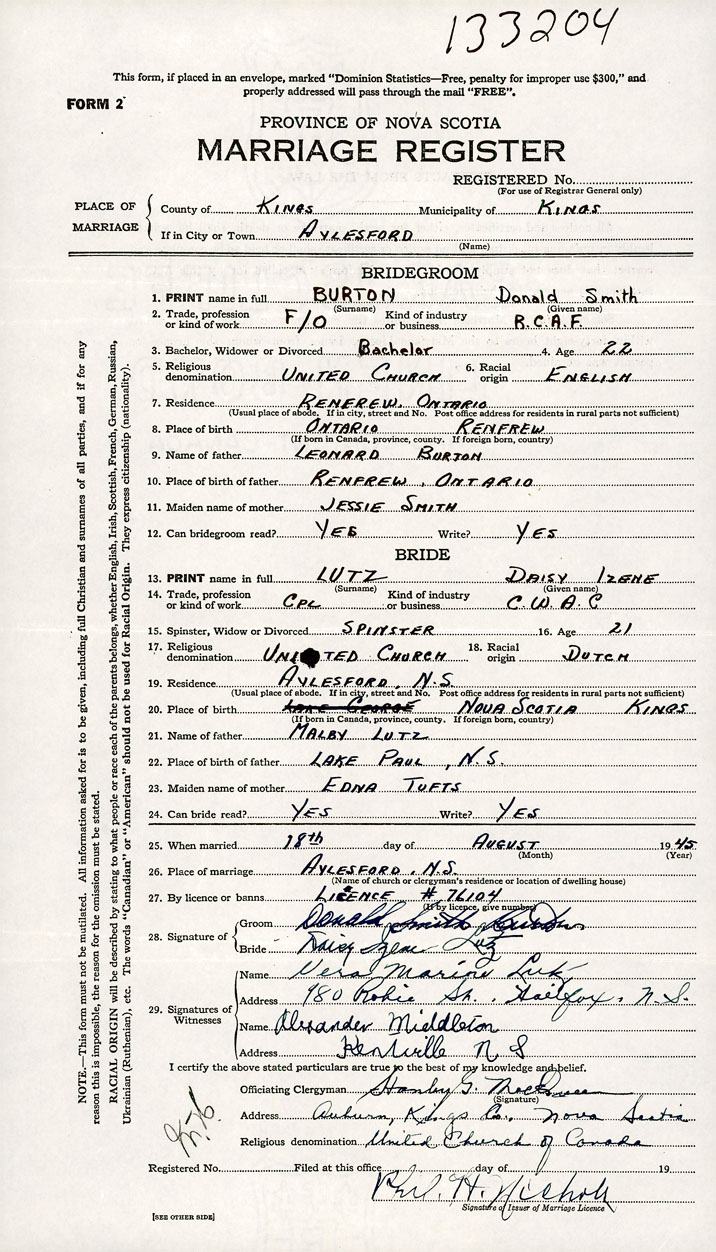 133204
This form, if placed in an envelope, marked "Dominion Statistics—Free, penalty for improper use $300," and
properly addressed will pass through the mail "FREE".
FORM 2
PROVINCE OF NOVA SCOTIA
MARRIAGE REGISTER
REGISTERED No.
(For use of Registrar General only)
PLACE OF MARRIAGE
County of KINGS Municipality of KINGS
If in City or Town AYLESFORD
(Name)
BRIDEGROOM
1. PRINT name in full BURTON Donald Smith
(Surname) (Given name)
2. Trade, profession or kind of work F/O Kind of industry or business R.C.A.F.
3. Bachelor, Widower or Divorced Bachelor 4. Age 22
5. Religious denomination UNITED CHURCH 6. Racial origin ENGLISH
7. Residence RENFREW, ONTARIO
(Usual place of abode. If in city, street and No. Post office address for residents in rural parts not sufficient)
8. Place of birth ONTARIO RENFREW
(If born in Canada, province, county. If foreign born, country)
9. Name of father LEONARD BURTON
10. Place of birth of father RENFREW, ONTARIO
11. Maiden name of mother JESSIE SMITH
12. Can bridegroom read? YES Write? YES
BRIDE
13. PRINT name in full LUTZ DAISY IZENE
(Surname) (Given name)
14. Trade, profession or kind of work CPL Kind of industry or business C.W.A.C
15. Spinster, Widow or Divorced SPINSTER 16. Age 21
17. Religious denomination UNITED CHURCH 18. Racial origin DUTCH
19. Residence AYLESFORD, N.S.
(Usual place of abode. If in city, street and No. Post office address for residents in rural parts not sufficient)
20. Place of birth LAKE GEORGE NOVA SCOTIA KINGS
(If born in Canada, province, county. If foreign born, country)
21. Name of father MALBY LUTZ
22. Place of birth of father LAKE PAUL, N.S.
23. Maiden name of mother EDNA TUFTS
24. Can bride read? YES Write? YES
25. When married 18th day of AUGUST 1945
(Month) (Year)
26. Place of marriage AYLESFORD, N.S.
(Name of church or clergyman's residence or location of dwelling house)
27. By licence or banns LICENCE # 76104
(If by licence, give number)
28. Signature of
Groom Donald Smith Burton
Bride Daisy Izene Lutz
29. Signatures of Witnesses
Name Vera Marine Lutz
Address 980 Robie St., Halifax, N.S.
Name Alexander Middleton
Address Kentville N S
I certify the above stated particulars are true to the best of my knowledge and belief.
Officiating Clergyman Stanley G.
(Signature)
Address Auburn, Kings Co. Nova Scotia
Religious denomination United Church of Canada
Registered No. Filed at this office day of 19
H. Nichols
Signature of Issuer of Marriage Licence
[SEE OTHER SIDE]
NOTE.—This form must not be mutilated. All information asked for is to be given, including full Christian and surnames of all parties, and if for any
reason this is impossible, the reason for the omission must be stated.
RACIAL ORIGIN will be described by stating to what people or race each of the parents belongs, whether English, Irish, Scottish, French, German, Russian,
Ukrainian (Ruthenian), etc. The words "Canadian" or "American" should not be used for Racial Origin. They express citizenship (nationality).